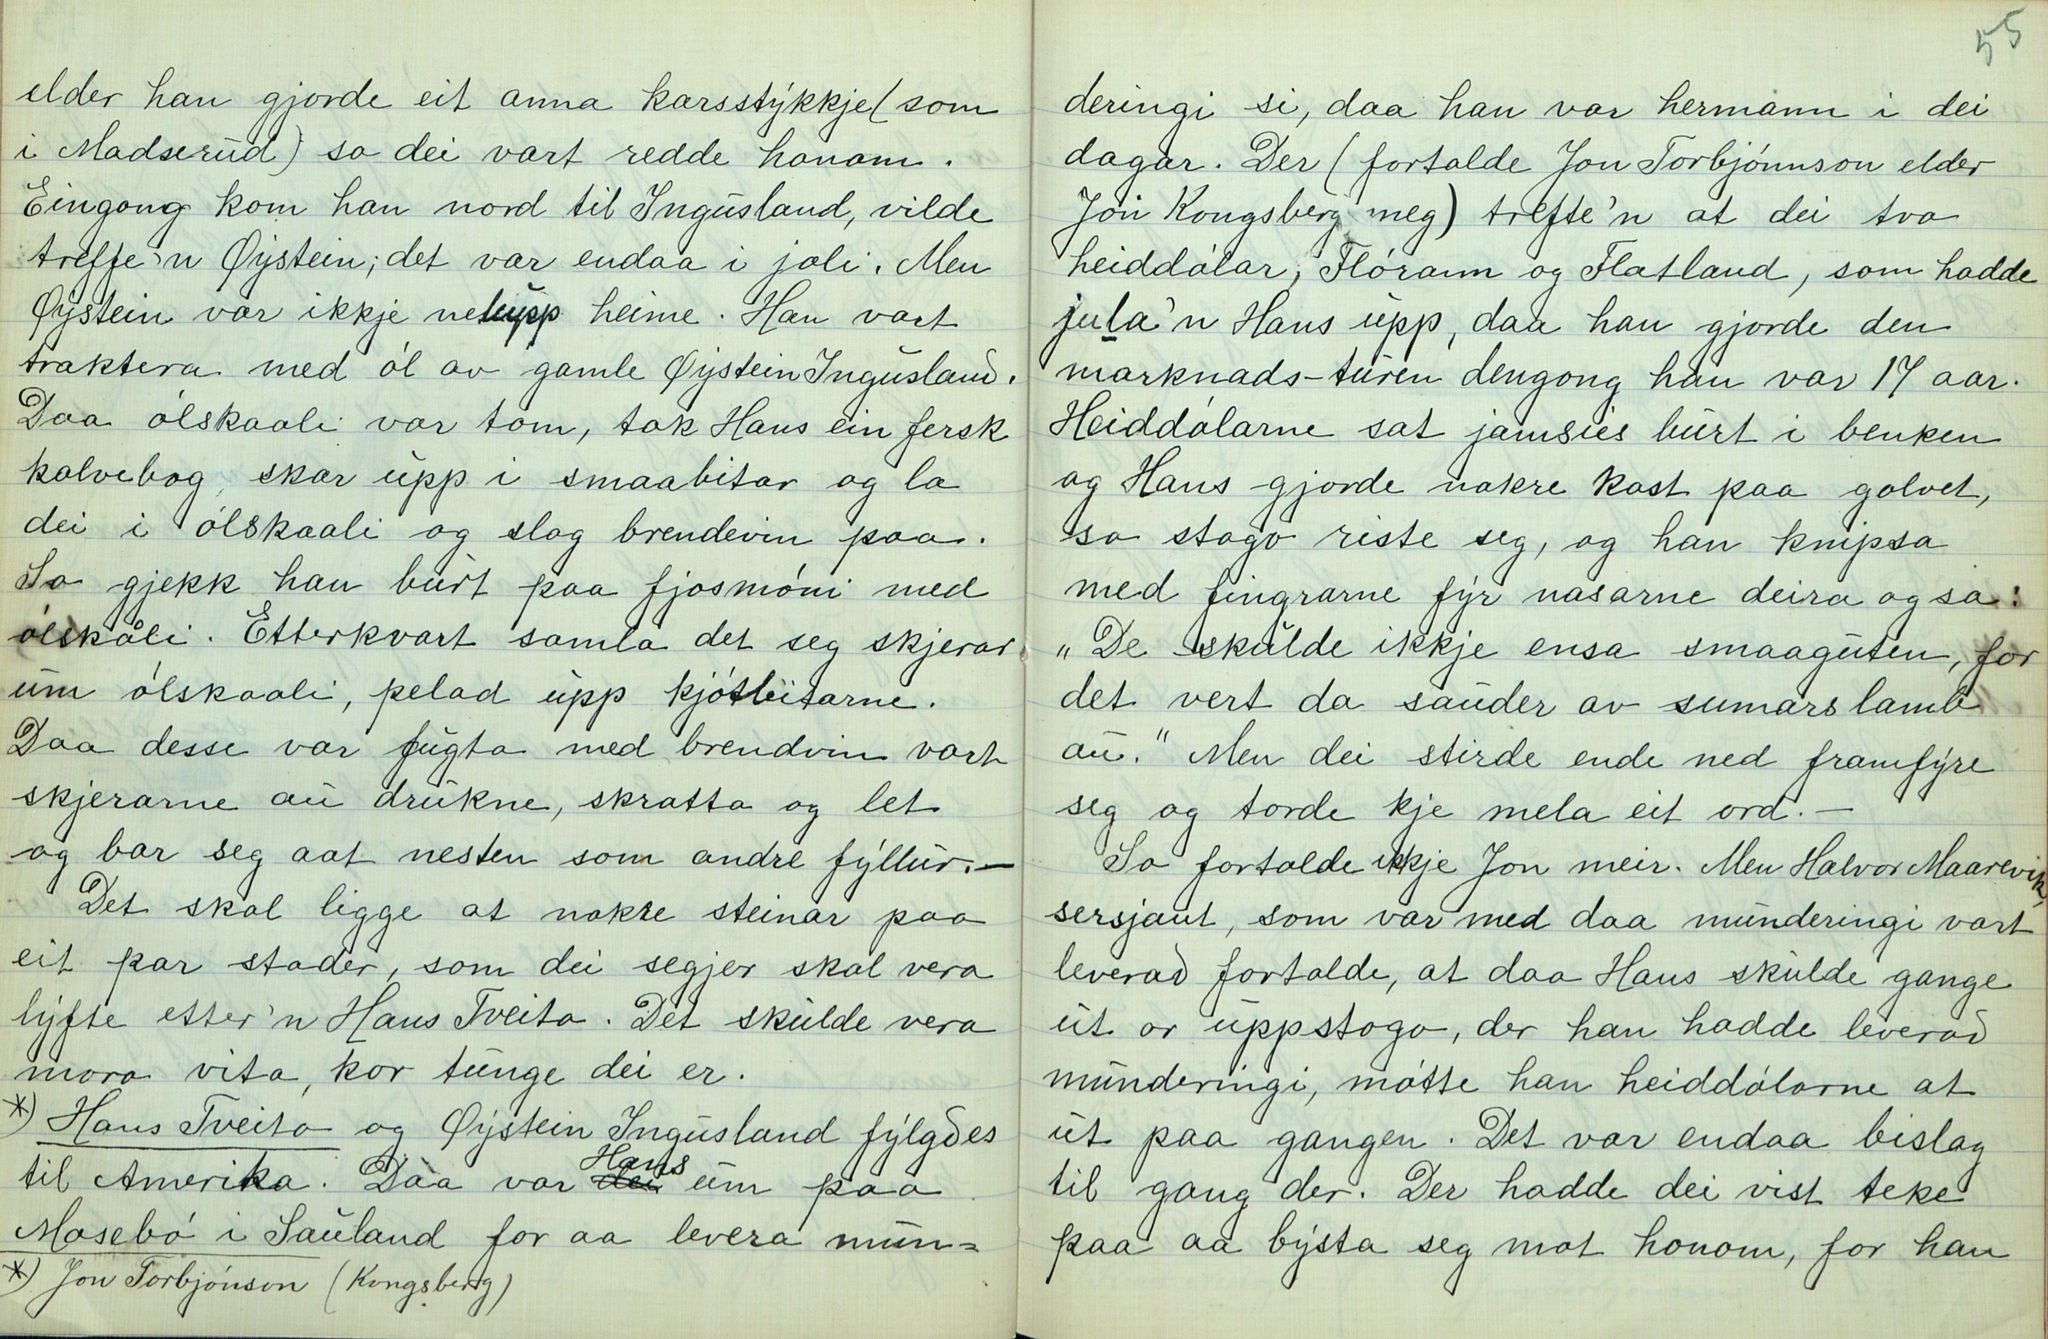 elder han gjorde eit anna karsstykkje (som
i Madserud) so dei vart redde honom.
Eingong kom han nord til Ingusland, vilde
treffe'n Øystein; det var endaa i joli. Men
Øystein var ikkje netupp heime. Han vart
traktera med ól av gamle Øystein Ingusland.
Daa ólskaali var tom, tok Hans ein fersk
kalvebog, skar upp i smaabitar og la
dei i ólskaali og slog brendevin paa.
So gjekk han burt paa fjosmóni med
ólskåli. Etterkvart samla det seg skjerar
um ólskaali, pelad upp kjótbitarne.
Daa desse var fugta med brendvin vart
skjerarne au drukne, skratta og let
og bar seg aat nesten som andre fyllur. —
Det skal ligge at nokre steinar paa
eit par stader, som dei segjer skal vera
lyfte etter'n Hans Tveito. Det skulde vera
mora vita, kor tunge dei er.
*) Hans Tveito og Øystein Ingusland fylgdes
til Amerika. Daa var dei Hans um paa
Mosebó i Sauland for aa levera mun=
*) Jon Torbjónson (Kongsberg)
55
deringi si, daa han var hermann i dei
dagar. Der (fortalde Jon Torbjónnson elder
Jon Kongsberg meg) trefte'n at dei tvo
heiddólar, Flórann og Flatland, som hadde
jula'n Hans upp, daa han gjorde den
marknads-turen dengong han var 17 aar.
Heiddólarne sat jamsies burt i benken
og Hans gjorde nokre kast paa golvet,
so stogo riste seg, og han knipsa
med fingrarne fyr nasarne deira og sa:
"De skulde ikkje ensa smaaguten, for
det vert da sauder av sumarslamb
au." Men dei stirde ende ned framfyre
seg og torde kje mela eit ord. —
So fortalde ikkje Jon meir. Men Halvor Maarevik,
sersjant, som var med daa munderingi vart
leverad fortalde, at daa Hans skulde gange
ut or uppstogo, der han hadde leverad
munderingi, mótte han heiddólarne at
ut paa gangen. Det var endaa bislag
til gang der. Der hadde dei vist teke
paa aa bysta seg mot honom, for han